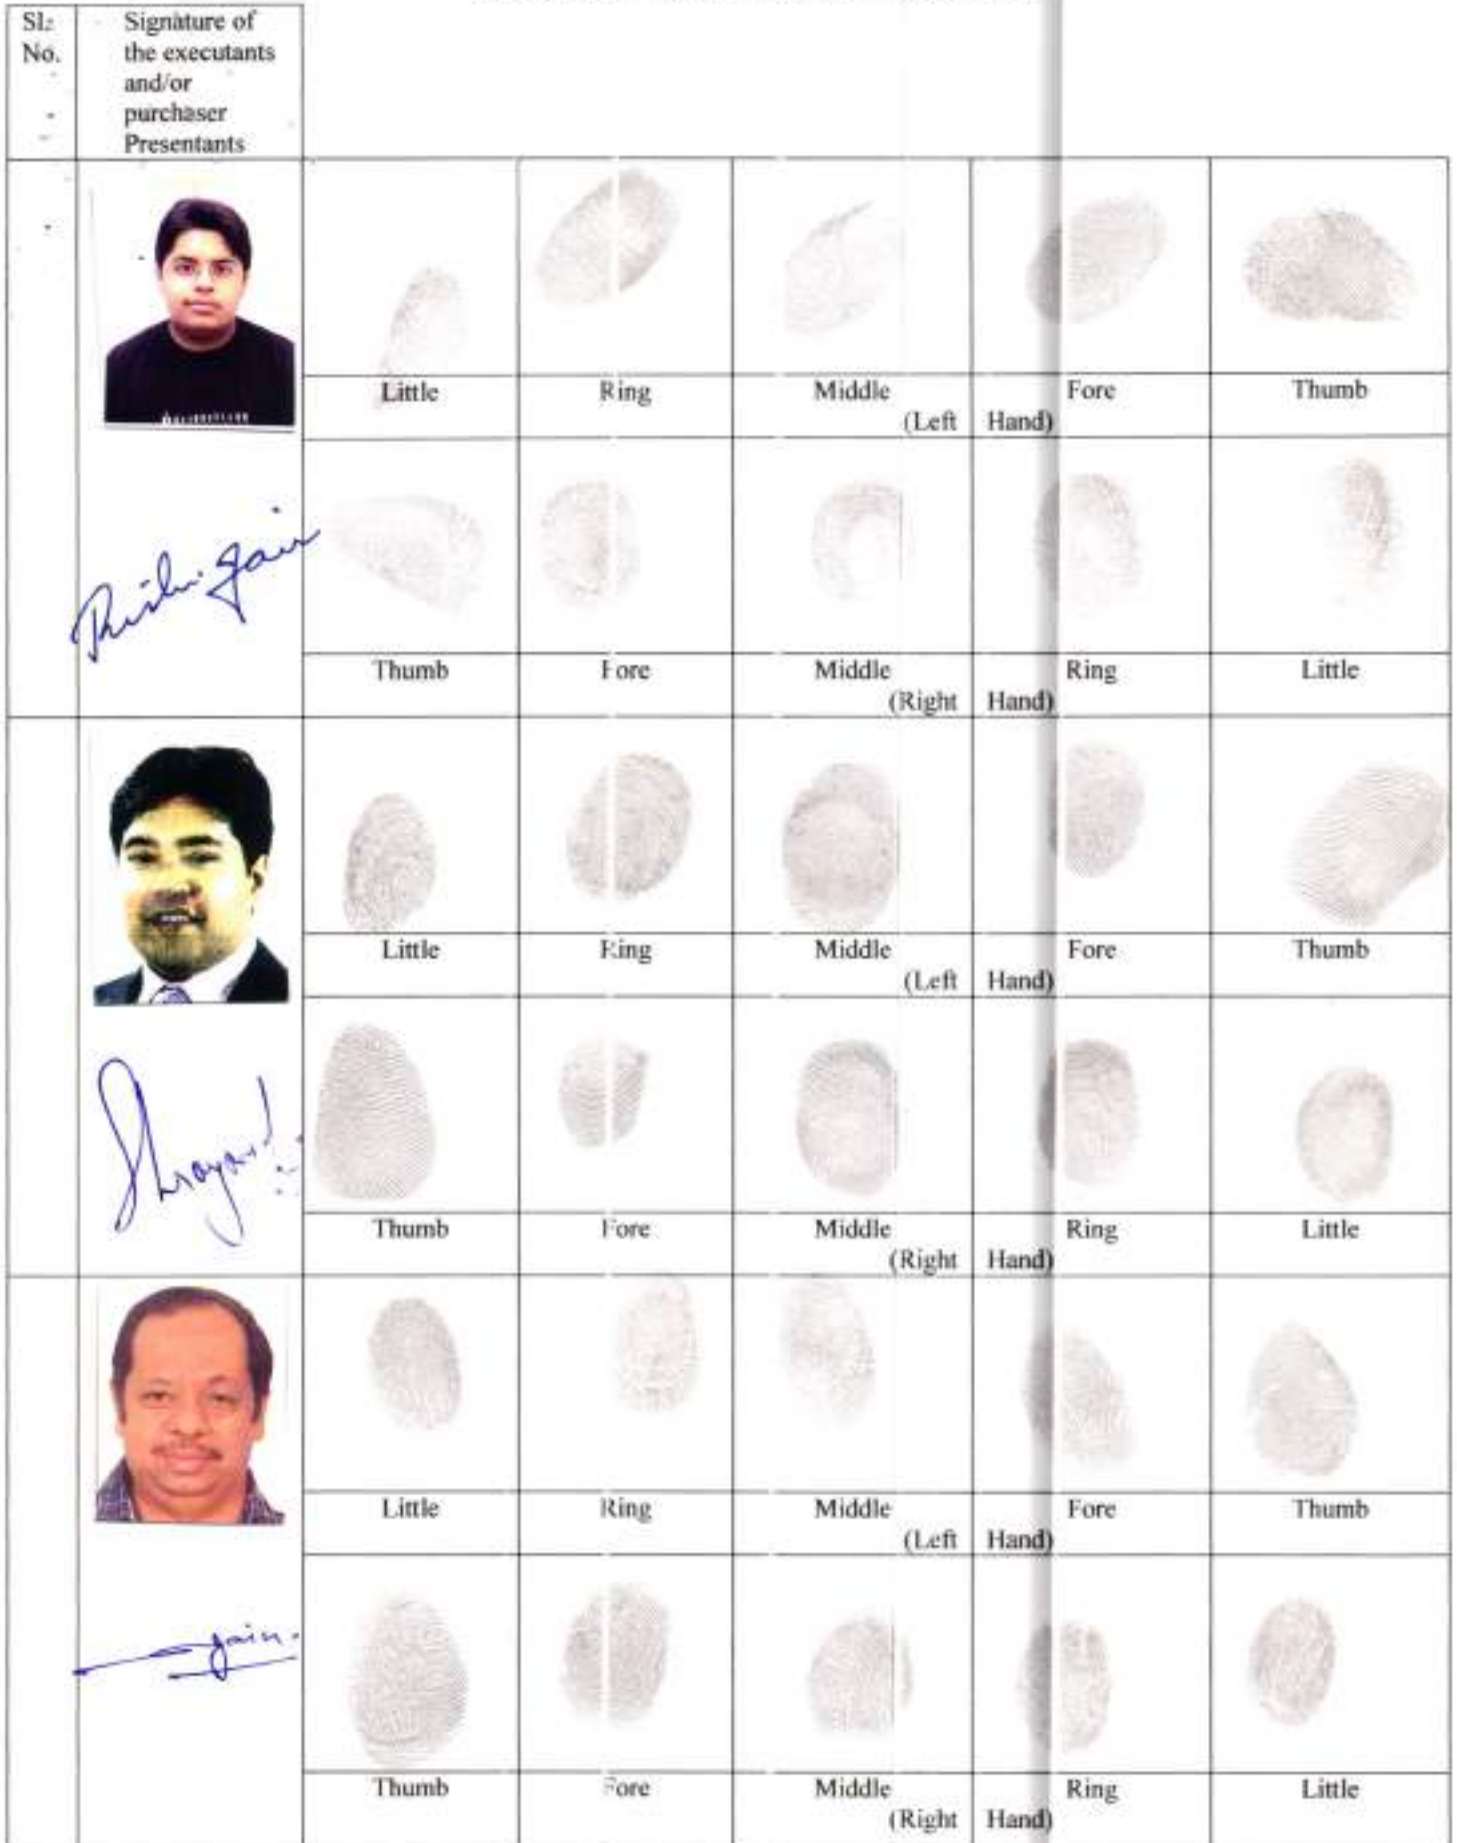 Sl.
No.
Signature of
the executants
and/or
purchaser
Presentants
Little Ring Middle Fore Thumb
(Left Hand)
Jain
Thumb Fore Middle Ring Little
(Right Hand)
Little Ring Middle Fore Thumb
(Left Hand)
Thumb Fore Middle Ring Little
(Right Hand)
Little Ring Middle Fore Thumb
(Left Hand)
Jain.
Thumb Fore Middle Ring Little
(Right Hand)